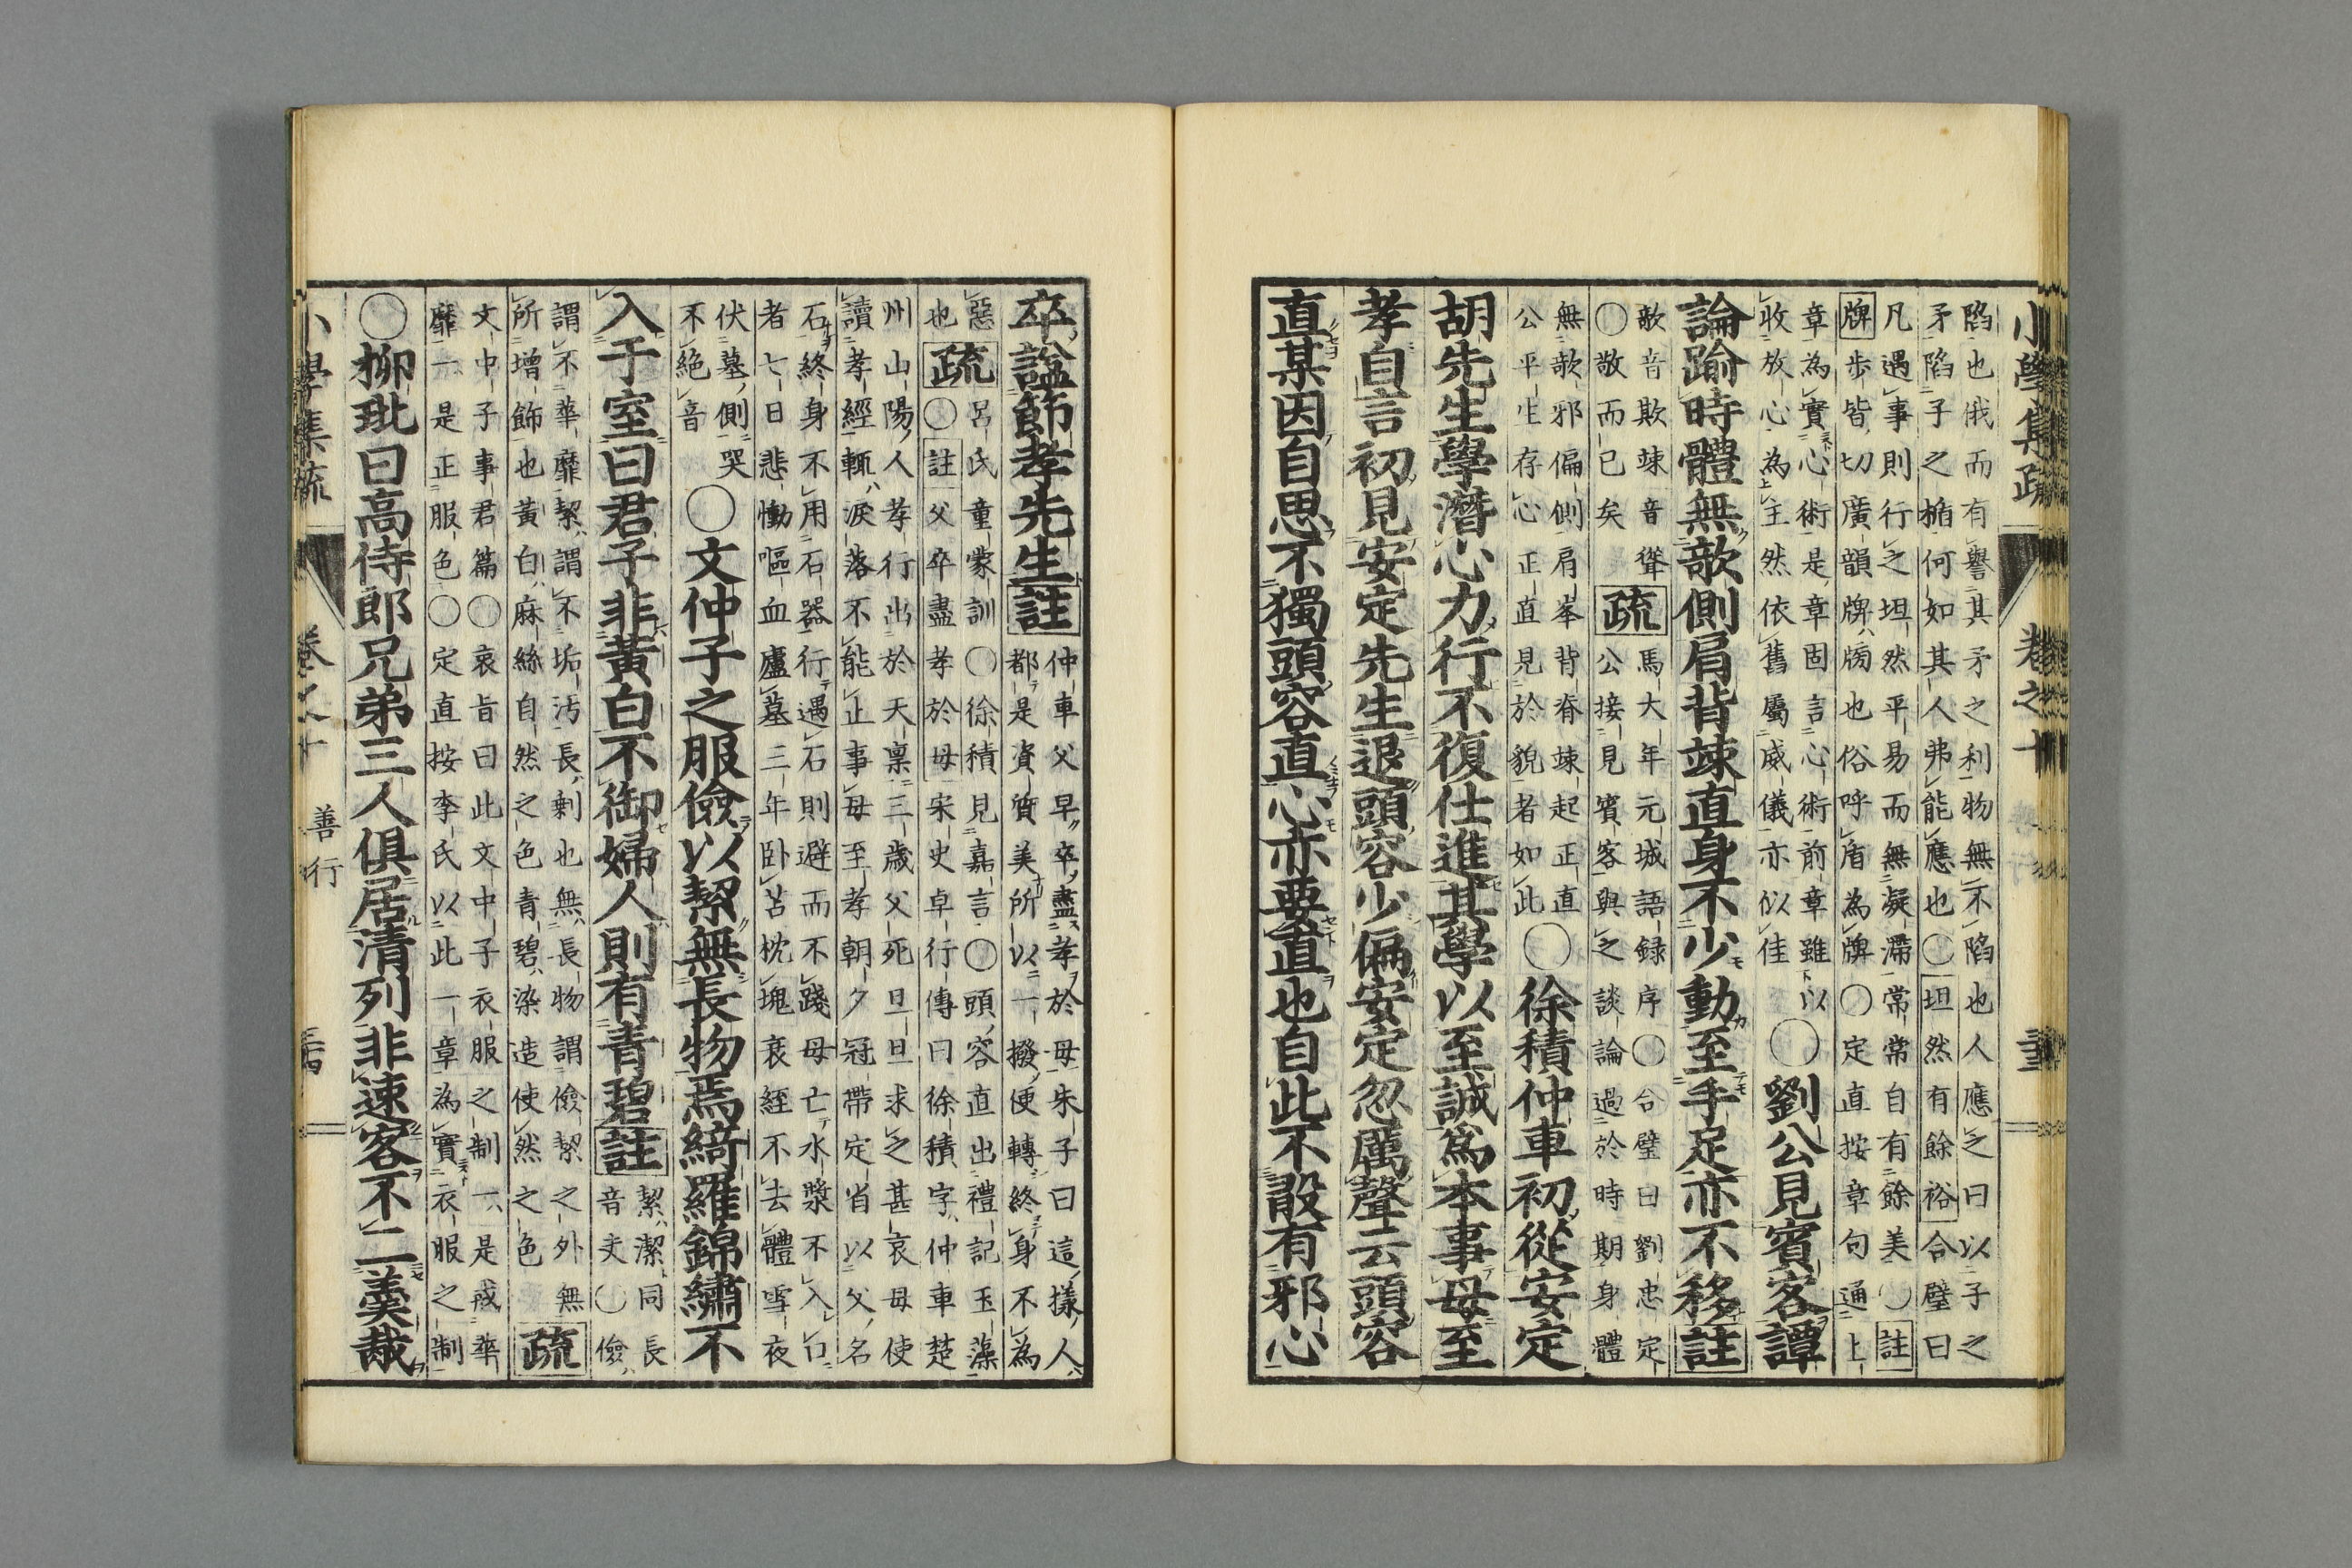 小學集疏　卷之十
陷也俄而有譽其矛之利物無不陷也人應之曰以子之
矛陷子之楯何如其人弗能應也○坦然有餘裕合璧曰
凡遇事則行之坦然平易而無凝滯常常自有餘美○註
牌步皆切廣韻牌牓也俗呼盾為牌○定直按章句通上
章為實心術是章固言心術前章雖以
收放心為主然依舊屬威儀亦似佳
○劉公見賓客譚
論踰時體無欹側肩背竦直身不少動至手足亦不移註
欹音欺竦音聳
○敬而已矣
疏
馬大年元城語録序○合璧曰劉忠定
公接見賓客與之談論過於時期身體
無欹邪偏側肩峯背脊竦起正直
公平生存心正直見於貌者如此
○徐積仲車初從安定
胡先生學潛心力行不復仕進其學以至誠爲本事母至
孝自言初見安定先生退頭容少偏安定忽厲聲云頭容
直某因自思不獨頭容直心亦要直也自此不敢有邪心
卒諡節孝先生註
仲車父早卒盡孝於母朱子曰這樣人
都是資質美所以一撥便轉終身不為
惡呂氏童蒙訓○徐積見嘉言○頭容直出禮記玉藻
也疏○註父卒盡孝於母宋史卓行傳曰徐積字仲車楚
州山陽人孝行出於天稟三歲父死旦旦求之甚哀母使
讀孝經輒淚落不能止事母至孝朝夕冠帶定省以父名
石終身不用石器行遇石則避而不踐母亡水漿不入口
者七日悲慟嘔血廬墓三年臥苫枕塊衰絰不去體雪夜
伏墓側哭
不絕音
○文仲子之服儉以絜無長物焉綺羅錦繡不
入于室曰君子非黃白不御婦人則有青碧註
絜潔同長
音丈○儉
謂不華靡絜謂不垢汚長剩也無長物謂儉絜之外無
所增飾也黃白麻絲自然之色青碧染造使然之色
疏
文中子事君篇○哀旨曰此文中子衣服之制一是戒華
靡一是正服色○定直按李氏以此一章為實衣服之制
○柳玭曰高侍郎兄弟三人俱居清列非速客不二羹胾
小學集疏　卷之十　善行